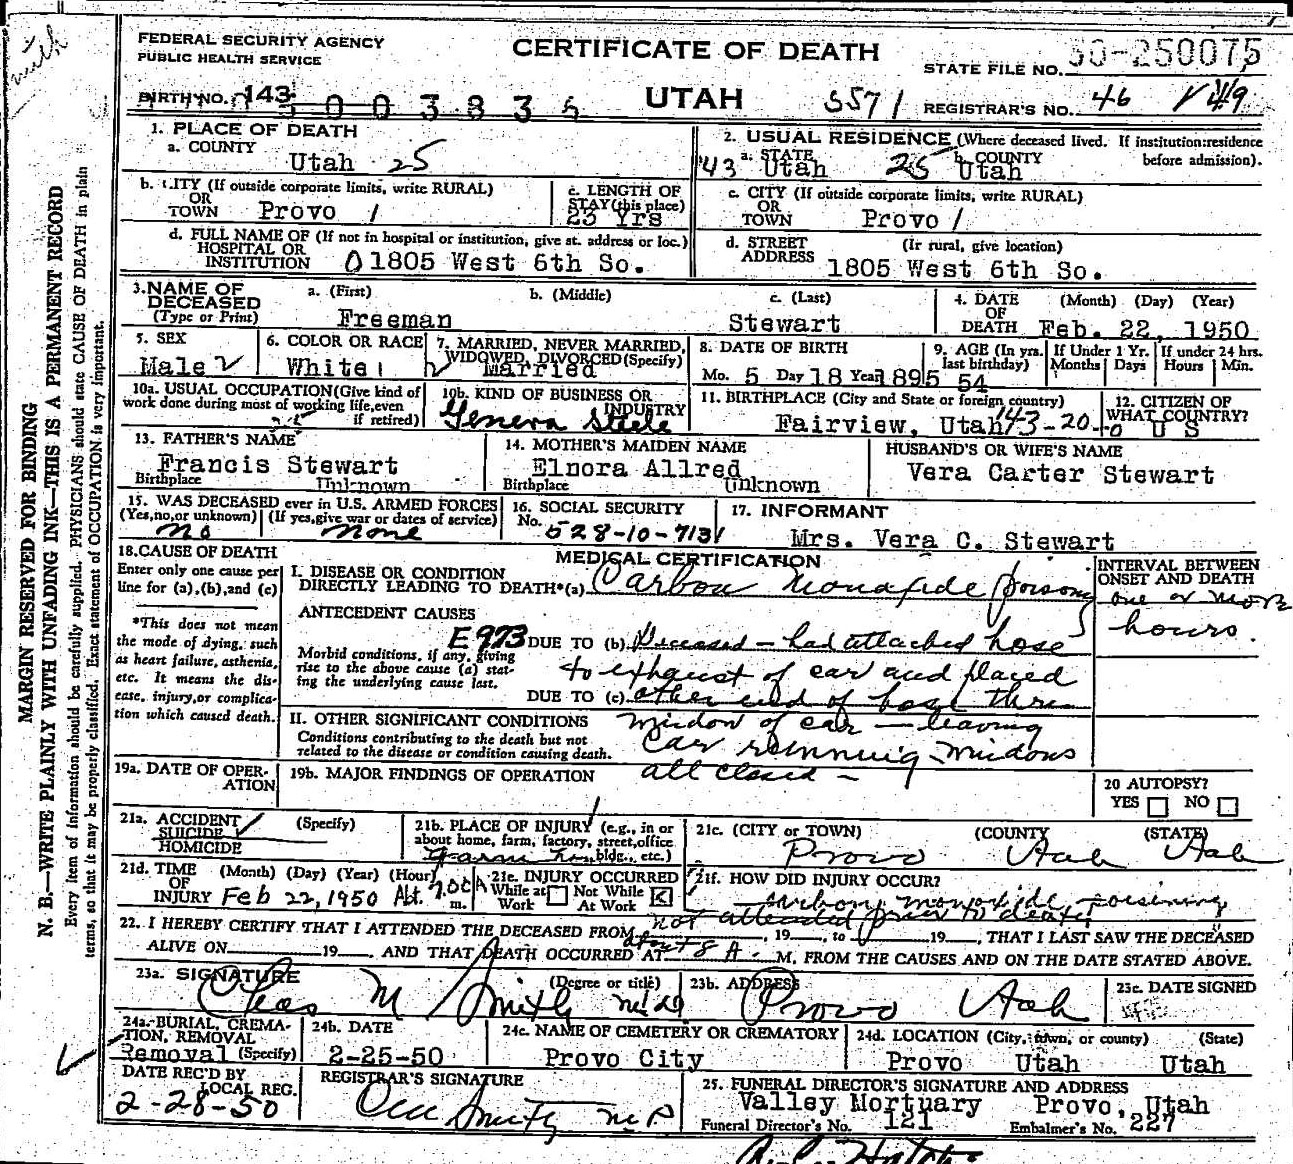 FEDERAL SECURITY AGENCY
PUBLIC HEALTH SERVICE
CERTIFICATE OF DEATH
STATE FILE NO. 50-250075
BIRTH NO. 143
UTAH
REGISTRAR'S NO. 46
MARGIN RESERVED FOR BINDING
N. B.—WRITE PLAINLY WITH UNFADING INK—THIS IS A PERMANENT RECORD
Every item of information should be carefully supplied. PHYSICIANS should state CAUSE OF DEATH in plain
terms, so that it may be properly classified. Exact statement of OCCUPATION is very important.
1. PLACE OF DEATH
a. COUNTY
Utah 25
2. USUAL RESIDENCE (Where deceased lived. If institution: residence
before admission).
a. STATE b. COUNTY
43 Utah 25 Utah
b. CITY (If outside corporate limits, write RURAL)
OR
TOWN Provo 1
c. LENGTH OF
STAY (this place)
23 Yrs
c. CITY (If outside corporate limits, write RURAL)
OR
TOWN Provo 1
d. FULL NAME OF (If not in hospital or institution, give st. address or loc.)
HOSPITAL OR
INSTITUTION 0 1805 West 6th So.
d. STREET (If rural, give location)
ADDRESS 1805 West 6th So.
3. NAME OF a. (First) b. (Middle) c. (Last)
DECEASED
(Type or Print) Freeman Stewart
4. DATE (Month) (Day) (Year)
OF
DEATH Feb. 22, 1950
5. SEX
Male
6. COLOR OR RACE
White
7. MARRIED, NEVER MARRIED,
WIDOWED, DIVORCED (Specify)
Married
8. DATE OF BIRTH
Mo. 5 Day 18 Year 1895
9. AGE (In yrs. last birthday)
54
If Under 1 Yr.
Months Days
If under 24 hrs.
Hours Min.
10a. USUAL OCCUPATION (Give kind of
work done during most of working life, even
if retired)
10b. KIND OF BUSINESS OR
INDUSTRY
Geneva Steele
11. BIRTHPLACE (City and State or foreign country)
Fairview, Utah 143-20-0
12. CITIZEN OF
WHAT COUNTRY?
U S
13. FATHER'S NAME
Francis Stewart
Birthplace Unknown
14. MOTHER'S MAIDEN NAME
Elnora Allred
Birthplace Unknown
HUSBAND'S OR WIFE'S NAME
Vera Carter Stewart
15. WAS DECEASED ever in U.S. ARMED FORCES
(Yes, no, or unknown) (If yes, give war or dates of service)
no none
16. SOCIAL SECURITY
No. 528-10-7131
17. INFORMANT
Mrs. Vera C. Stewart
18. CAUSE OF DEATH
Enter only one cause per
line for (a), (b), and (c)
*This does not mean
the mode of dying, such
as heart failure, asthenia,
etc. It means the dis-
ease, injury, or complica-
tion which caused death.
MEDICAL CERTIFICATION
I. DISEASE OR CONDITION
DIRECTLY LEADING TO DEATH*(a) Carbon Monoxide poisong
INTERVAL BETWEEN
ONSET AND DEATH
one or more
hours.
ANTECEDENT CAUSES
E973 DUE TO (b) Deceased - had attached hose
Morbid conditions, if any, giving
rise to the above cause (a) stat-
ing the underlying cause last.
to exhaust of car and placed
DUE TO (c) other end of hose thru
II. OTHER SIGNIFICANT CONDITIONS
Conditions contributing to the death but not
related to the disease or condition causing death.
window of car - leaving
car running - windows
all closed -
19a. DATE OF OPER-
ATION
19b. MAJOR FINDINGS OF OPERATION
20 AUTOPSY?
YES NO
21a. ACCIDENT (Specify)
SUICIDE
HOMICIDE
21b. PLACE OF INJURY (e.g., in or
about home, farm, factory, street, office
bldg., etc.)
21c. (CITY or TOWN) (COUNTY (STATE)
Provo Utah Utah
21d. TIME (Month) (Day) (Year) (Hour)
OF
INJURY Feb 22, 1950 Abt. 7.00A m.
21e. INJURY OCCURRED
While at Work Not While At Work
21f. HOW DID INJURY OCCUR?
carbon monoxide poisining
22. I HEREBY CERTIFY THAT I ATTENDED THE DECEASED FROM not attended prior to death, 19__, to 19__, THAT I LAST SAW THE DECEASED
ALIVE ON 19__, AND THAT DEATH OCCURRED AT about 8 A. M., FROM THE CAUSES AND ON THE DATE STATED ABOVE.
23a. SIGNATURE (Degree or title)
Chas M Smith MD
23b. ADDRESS
Provo Utah
23c. DATE SIGNED
24a. BURIAL, CREMA-
TION, REMOVAL
Removal (Specify)
24b. DATE
2-25-50
24c. NAME OF CEMETERY OR CREMATORY
Provo City
24d. LOCATION (City, town, or county) (State)
Provo Utah Utah
DATE REC'D BY
LOCAL REG.
2-28-50
REGISTRAR'S SIGNATURE
Smith M D
25. FUNERAL DIRECTOR'S SIGNATURE AND ADDRESS
Valley Mortuary Provo, Utah
Funeral Director's No. 121 Embalmer's No. 227